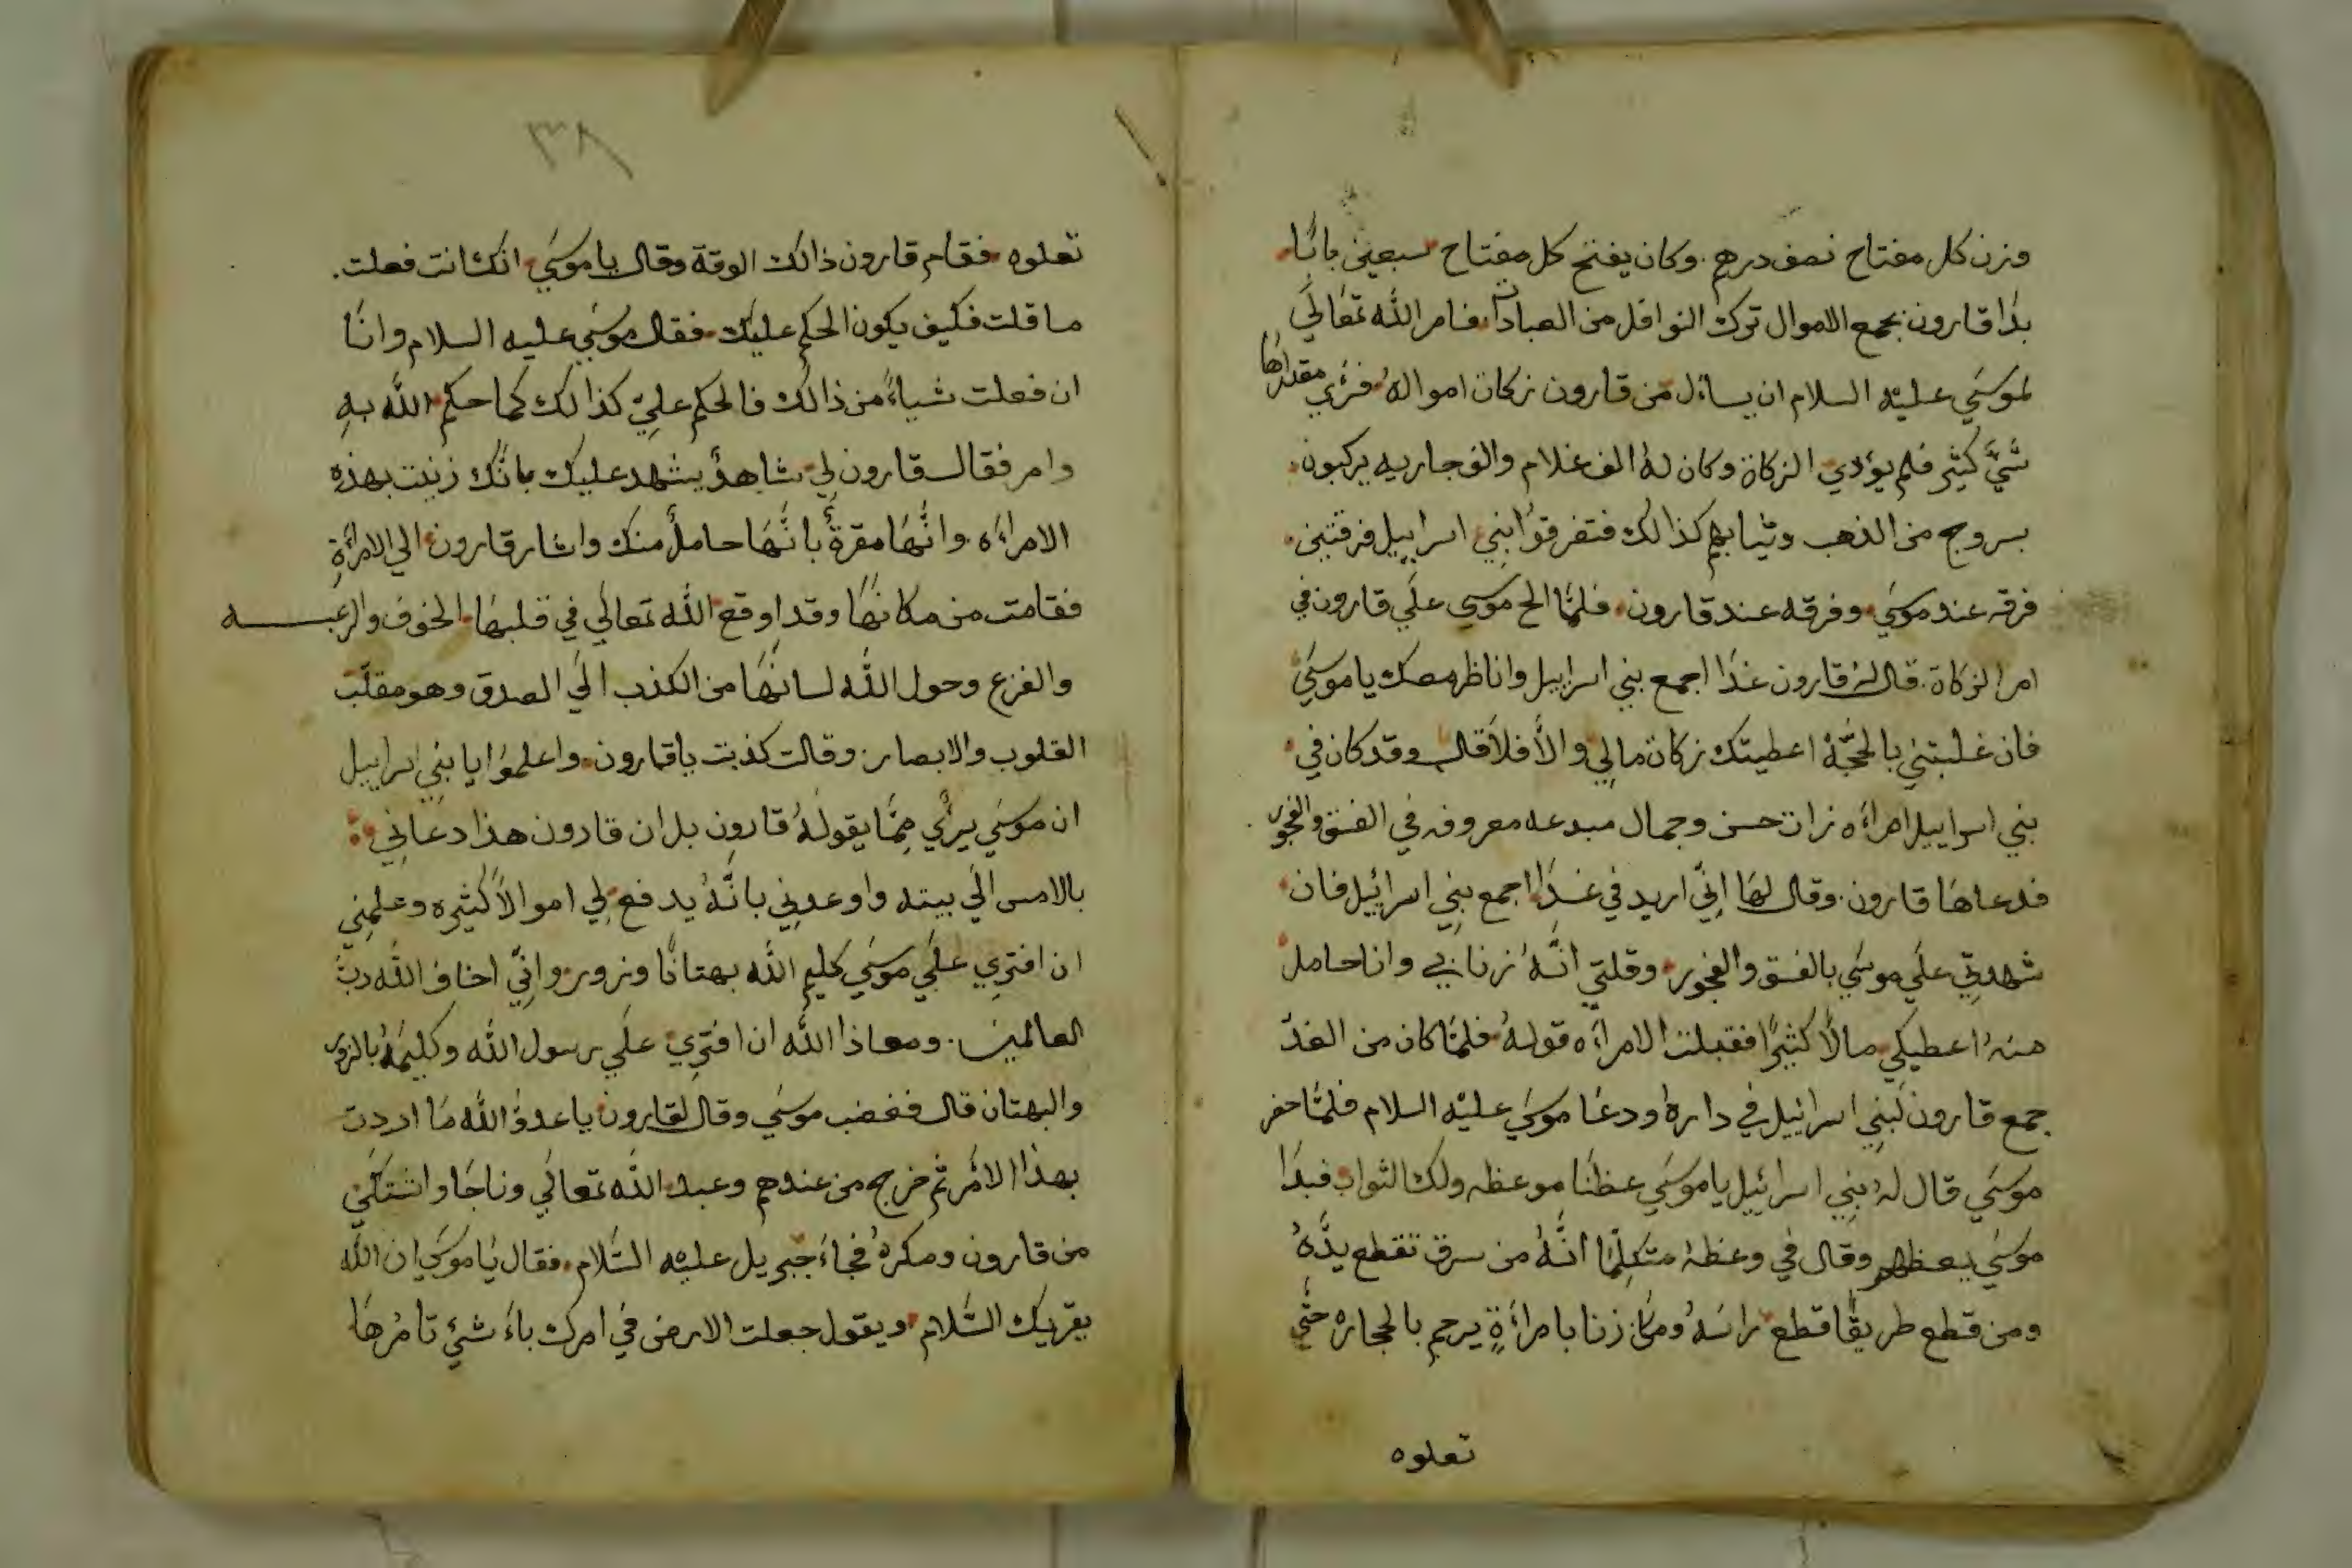 وزن كل مفتاح نصف درهم. وكان يفتح كل مفتاح سبعين بابًا
بدا قارون بجمع الاموال ترك النوافل من العبادات فامر الله تعالي
لموسي عليه السلام ان يسائل من قارون زكاة امواله فرئي مقدارها
شيّ كثير فلم يؤدي الزكاة وكان له الف غلام والف جاريه يركبون
بسروج من الذهب وثيابهم كذالك فتفرقوا بني اسراييل فرقتين
فرقه عند موسي وفرقه عند قارون فلمّا الح موسي علي قارون في
امر الزكاة قال له قارون غدا اجمع بني اسراييل واناظر معك يا موسي
فان غلبتني بالحجّة اعطيتك زكاة مالي والّا فلا قال وقد كان في
بني اسراييل امراءه ذات حسن وجمال مبدعه معروفه في الفسق والفجور
فدعاها قارون. وقال لها انّي اريد في غدا اجمع بني اسرائيل فان
شهدتي علي موسي بالفسق والفجور وقلتي انّه زنا بي وانا حامل
منه اعطيكي مالًا كثيرًا فقبلت الامراءه قوله فلمّا كان من الغد
جمع قارون لبني اسرائيل في داره ودعا موسي عليه السلام فلمّا حضر
موسي قال له بني اسرائيل يا موسي عظنا موعظه ولك الثواب فبدا
موسي يعظهم وقال في وعظه متكلّمًا انّه من سرق تقطع يدّه
ومن قطع طريقًا قطع راسه ومن زنا بامراءةٍ يرجم بالحجاره حتّي
تعلوه
٣٨
تعلوه فقام قارون ذالك الوقة وقال يا موسي انك انت فعلت.
ما قلت فكيف يكون الحكم عليك فقال موسي عليه السلام وانا
ان فعلت شياءً من ذالك فالحكم عليّ كذالك كما حكم الله به
وامر فقال قارون لي شاهدٌ يشهد عليك بانّك زنيت بهذه
الامراءه. وانّها مقرةٌ بانّها حاملٌ منك واشار قارون الي الامراءة
فقامت من مكانها وقد اوقع الله تعالي في قلبها الخوف والرعبه
والفزع وحول الله لسانها من الكذب الي الصدق وهو مقلّب
القلوب والابصار. وقالت كذبت يا قارون. واعلموا يا بني اسراييل
ان موسي برئي ممّا يقوله قارون بل ان قارون هذا دعاني
بالامس الي بيته واوعدني بانّه يدفع لي اموالًا كثيره وعلمني
ان افتري علي موسي كليم الله بهتانًا وزور وانّي اخاف الله ربّ
العالمين. ومعاذا الله ان افتري علي رسول الله وكليمه بالزور
والبهتان قال فغضب موسي وقال لقارون يا عدوّ الله ما اردت
بهذا الامر ثم خرج من عندهم وعبد الله تعالي وناجا واشتكي
من قارون ومكره فجاء جبريل عليه السّلام. فقال يا موسي ان الله
يقريك السّلام ويقول جعلت الارض في امرك باء شئ تامرها